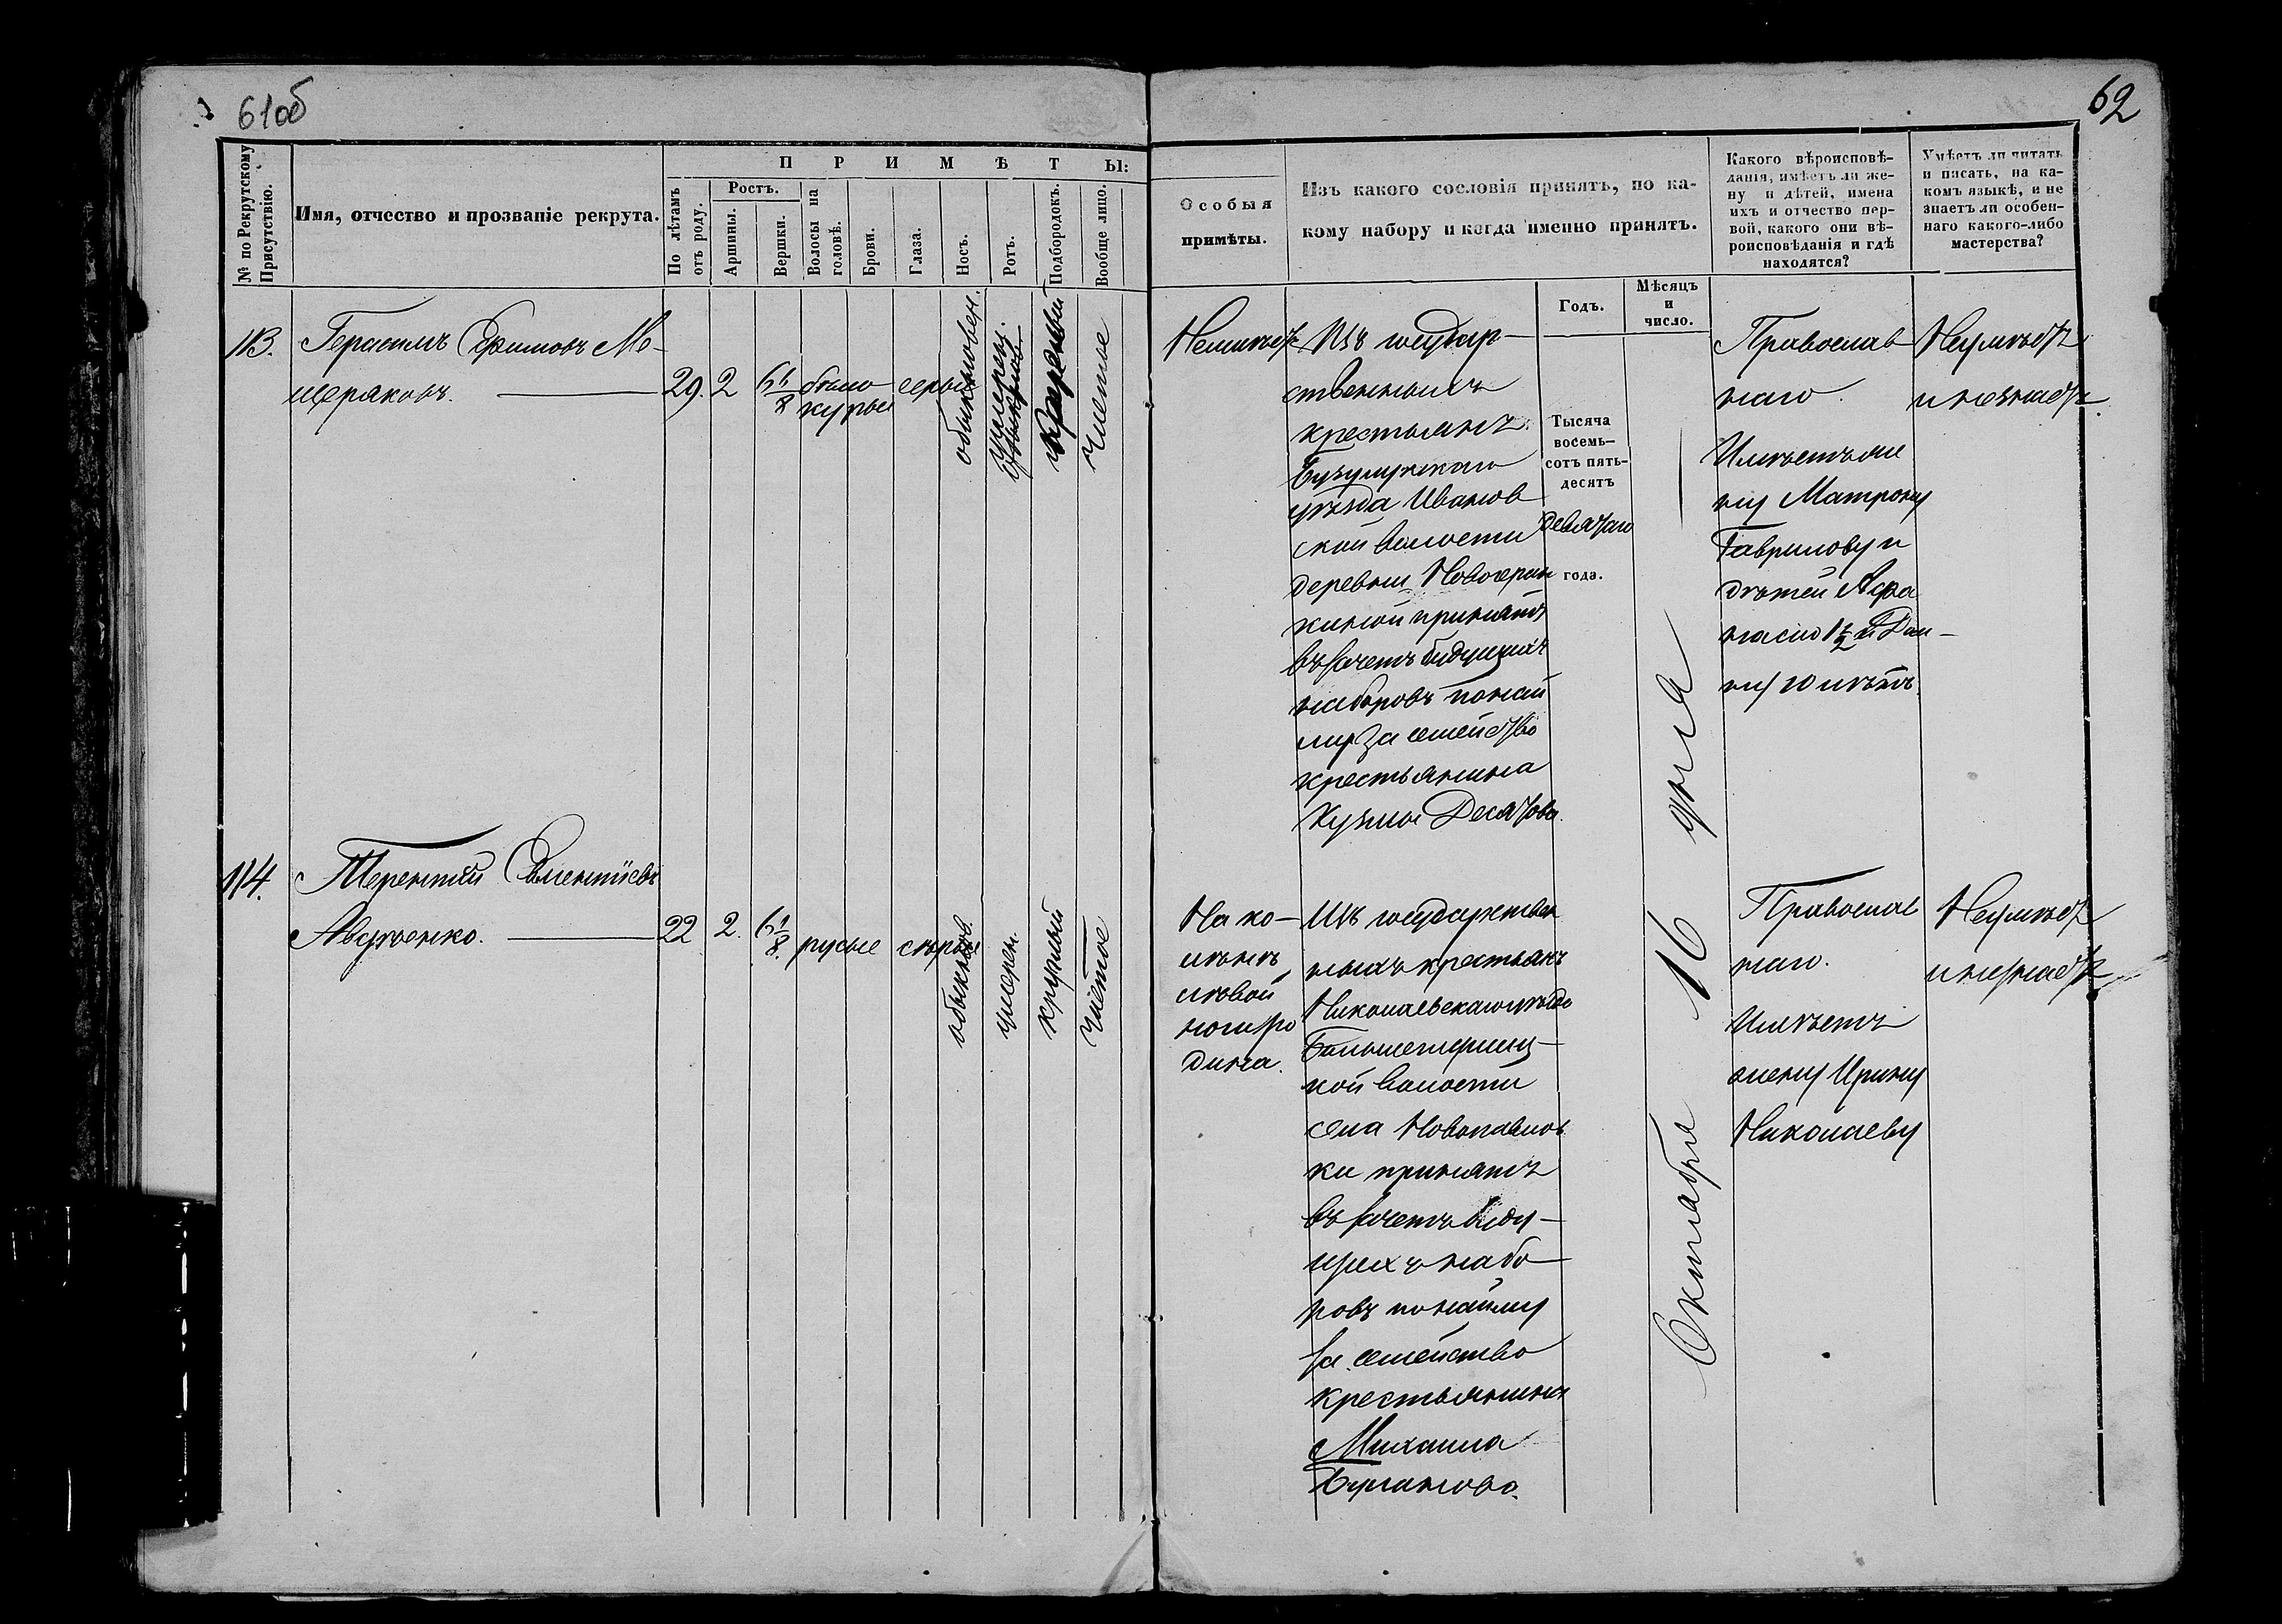 61об
62
№ по Рекрутскому Присутствію.
Имя, отчество и прозваніе рекрута.
ПРИМѢТЫ:
По лѣтамъ отъ роду.
Ростъ.
Аршины.
Вершки.
Волосы на головѣ.
Брови.
Глаза.
Носъ.
Ротъ.
Подбородокъ.
Вообще лицо.
Особыя
примѣты.
Изъ какого сословія принятъ, по ка-
кому набору и когда именно принятъ.
Годъ.
Мѣсяцъ
и
число.
Какого вѣроисповѣ-
данія, имѣетъ ли же-
ну и дѣтей, имена
ихъ и отчество пер-
вой, какого они вѣ-
роисповѣданія и гдѣ
находятся?
Умѣетъ ли читать
и писать, на ка-
комъ языкѣ, и не
знаетъ ли особен-
наго какого-либо
мастерства?
113.
Герасимъ Ефимовъ Ме-
щеряковъ.
29.
2
6 6/8
свѣтло
курые
серые
обыкновен.
умерен.
круглый
чистое
Неимѣетъ
Изъ государ-
ственныхъ
крестьянъ
Бузулукскаго
уѣзда Иванов
ской волости
деревни
киной принятъ
въ зачетъ будущихъ
наборовъ по най
му за семейство
крестьянина
Кузмы Десятова.
Тысяча
восемь-
сотъ пять-
десятъ
девятаго
года.
Октября 16 дня
Православ
наго.
Имѣетъ же
ну Матрону
Гаврилову и
дѣтей Афа
насію 1 1/2 и Дом-
ну 10 лѣтъ.
Неумѣетъ
и незнаетъ.
114.
Терентій
Авсѣенко.
22
2.
6 1/8.
русые
сѣрые
обыкнов.
умерен.
круглый
чистое
На ко-
лѣнѣ
лѣвой
ноги ро
дина.
Изъ государствен
ныхъ крестьянъ
Николаевскаго уѣзда
кой волости
села Новопавлов
ки принятъ
въ зачетъ буду-
щихъ набо-
ровъ по найму
за семейство
крестьянина
Михаила
Православ
наго.
Имѣетъ
жену Ирину
Николаеву
Неумѣетъ
и незнаетъ